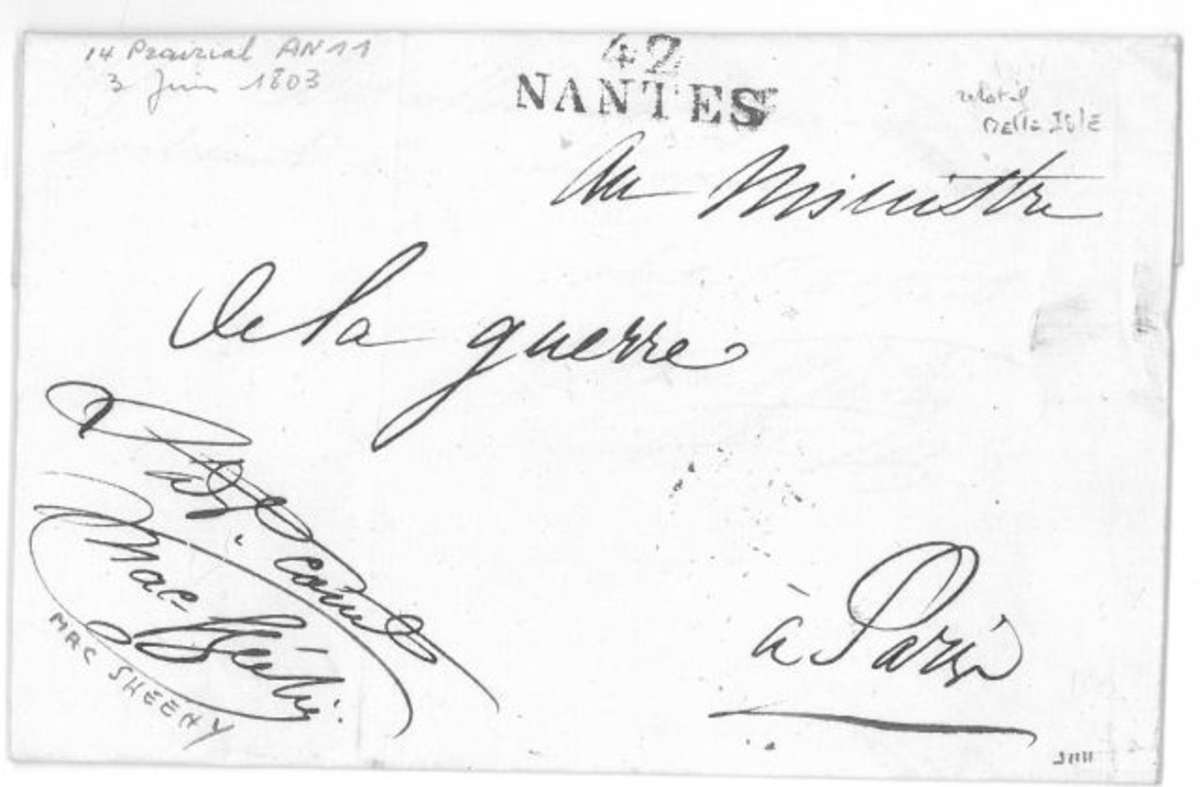 14 Prairial AN 11
3 Juin 1803
42
NANTES
relatif
Belle Isle
Au Ministre
de la guerre
Mac-Sheehi
MAC SHEEHY
à Paris